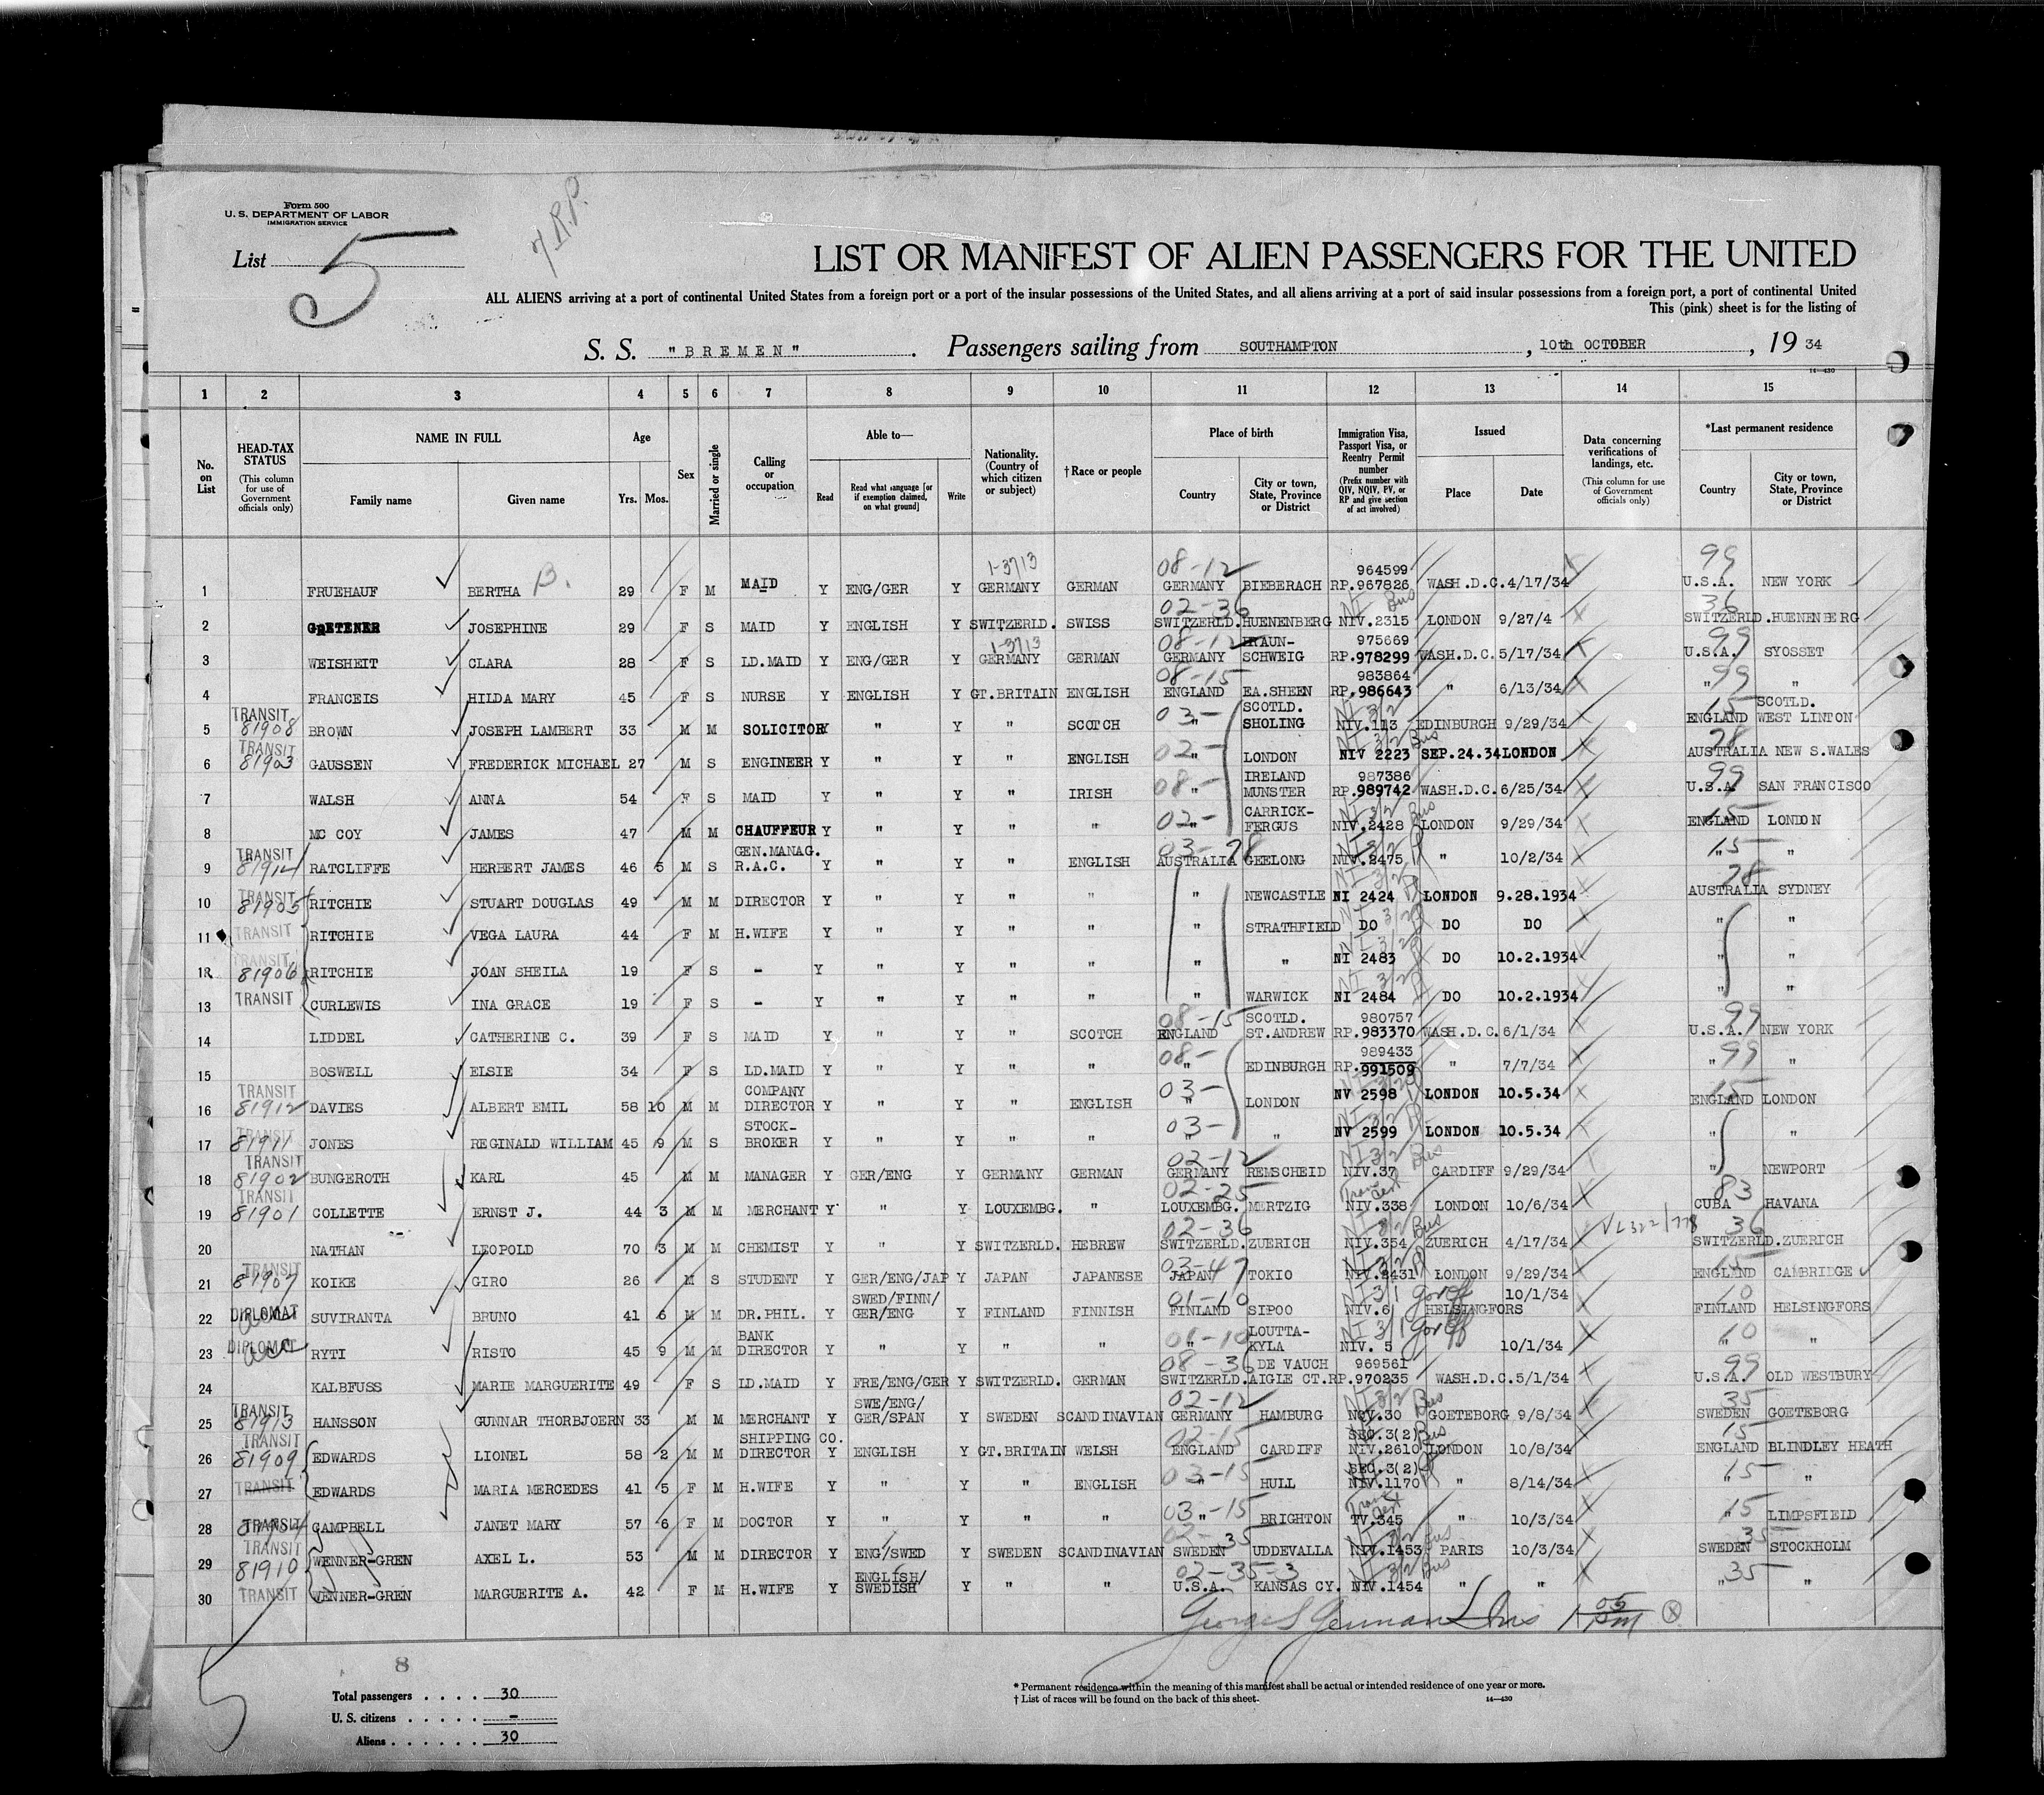 Form 500
U. S. DEPARTMENT OF LABOR
IMMIGRATION SERVICE
7 R.P.
List 5
LIST OR MANIFEST OF ALIEN PASSENGERS FOR THE UNITED
ALL ALIENS arriving at a port of continental United States from a foreign port or a port of the insular possessions of the United States, and all aliens arriving at a port of said insular possessions from a foreign port, a port of continental United
This (pink) sheet is for the listing of
S. S. "BREMEN". Passengers sailing from SOUTHAMPTON, 10th OCTOBER, 19 34
14—430
1 2 3 4 5 6 7 8 9 10 11 12 13 14 15
No. on List
HEAD-TAX STATUS (This column for use of Government officials only)
NAME IN FULL Family name Given name
Age Yrs. Mos.
Sex
Married or single
Calling or occupation
Able to— Read Read what language [or if exemption claimed, on what ground] Write
Nationality. (Country of which citizen or subject)
†Race or people
Place of birth Country City or town, State, Province or District
Immigration Visa, Passport Visa, or Reentry Permit number (Prefix number with QIV, NQIV, PV, or RP and give section of act involved)
Issued Place Date
Data concerning verifications of landings, etc. (This column for use of Government officials only)
*Last permanent residence Country City or town, State, Province or District
1 FRUEHAUF BERTHA B. 29 F M MAID Y ENG/GER Y 1-3713 GERMANY GERMAN 08-12 GERMANY BIEBERACH 964599 RP.967826 WASH.D.C. 4/17/34 99 U.S.A. NEW YORK
2 JOSEPHINE 29 F S MAID Y ENGLISH Y SWITZERLD. SWISS 02-36 SWITZERLD. HUENENBERG NI Bus NIV.2315 LONDON 9/27/4 36 SWITZERLD. HUENENBERG
3 WEISHEIT CLARA 28 F S LD.MAID Y ENG/GER Y 1-3713 GERMANY GERMAN 08-12 GERMANY BRAUN-SCHWEIG 975669 RP.978299 WASH.D.C. 5/17/34 99 U.S.A. SYOSSET
4 FRANCEIS HILDA MARY 45 F S NURSE Y ENGLISH Y GT.BRITAIN ENGLISH 08-15 ENGLAND EA.SHEEN 983864 RP.986643 " 6/13/34 " 99 "
5 TRANSIT 81908 BROWN JOSEPH LAMBERT 33 M M SOLICITOR Y " Y " SCOTCH 03- " SCOTLD. SHOLING NI 3/2 NIV.113 EDINBURGH 9/29/34 15 ENGLAND SCOTLD. WEST LINTON
6 TRANSIT 81903 GAUSSEN FREDERICK MICHAEL 27 M S ENGINEER Y " Y " ENGLISH 02- " LONDON NI 3/2 Bus NIV 2223 SEP.24.34 LONDON 78 AUSTRALIA NEW S.WALES
7 WALSH ANNA 54 F S MAID Y " Y " IRISH 08- " IRELAND MUNSTER 987386 RP.989742 WASH.D.C. 6/25/34 99 U.S.A. SAN FRANCISCO
8 MC COY JAMES 47 M M CHAUFFEUR Y " Y " " 02- " CARRICK-FERGUS NI 3/2 Bus NIV.2428 LONDON 9/29/34 15 ENGLAND LONDON
9 TRANSIT 81914 RATCLIFFE HERBERT JAMES 46 5 M S GEN.MANAG. R.A.C. Y " Y " ENGLISH 03-78 AUSTRALIA GEELONG NI 3/2 NIV.2475 " 10/2/34 15 " "
10 TRANSIT 81905 RITCHIE STUART DOUGLAS 49 M M DIRECTOR Y " Y " " " NEWCASTLE NI 3/2 NI 2424 LONDON 9.28.1934 78 AUSTRALIA SYDNEY
11 TRANSIT RITCHIE VEGA LAURA 44 F M H.WIFE Y " Y " " " STRATHFIELD NI 3/2 DO DO DO " "
12 TRANSIT 81906 RITCHIE JOAN SHEILA 19 F S - Y " Y " " " " NI 3/2 NI 2483 DO 10.2.1934 " "
13 TRANSIT CURLEWIS INA GRACE 19 F S - Y " Y " " " WARWICK NI 3/2 NI 2484 DO 10.2.1934 " "
14 LIDDEL CATHERINE C. 39 F S MAID Y " Y " SCOTCH 08-15 ENGLAND SCOTLD. ST.ANDREW 980757 RP.983370 WASH.D.C. 6/1/34 99 U.S.A. NEW YORK
15 BOSWELL ELSIE 34 F S LD.MAID Y " Y " " 08- " EDINBURGH 989433 RP.991509 " 7/7/34 " 99 "
16 TRANSIT 81912 DAVIES ALBERT EMIL 58 10 M M COMPANY DIRECTOR Y " Y " ENGLISH 03- " LONDON NI 3/2 NV 2598 LONDON 10.5.34 15 ENGLAND LONDON
17 TRANSIT 81911 JONES REGINALD WILLIAM 45 9 M S STOCK-BROKER Y " Y " " 03- " " NI 3/2 NV 2599 LONDON 10.5.34 " "
18 TRANSIT 81902 BUNGEROTH KARL 45 M M MANAGER Y GER/ENG Y GERMANY GERMAN 02-12 GERMANY REMSCHEID NI 3/2 Bus NIV.37 CARDIFF 9/29/34 " NEWPORT
19 TRANSIT 81901 COLLETTE ERNST J. 44 3 M M MERCHANT Y " Y LOUXEMBG. " 02-25 LOUXEMBG. MERTZIG Trans Cert NIV.338 LONDON 10/6/34 83 CUBA HAVANA
20 NATHAN LEOPOLD 70 3 M M CHEMIST Y " Y SWITZERLD. HEBREW 02-36 SWITZERLD. ZUERICH NI 3/2 Bus NIV.354 ZUERICH 4/17/34 36 SWITZERLD. ZUERICH
21 TRANSIT 81907 KOIKE GIRO 26 M S STUDENT Y GER/ENG/JAP Y JAPAN JAPANESE 03-47 JAPAN TOKIO NI 3/2 NIV.2431 LONDON 9/29/34 15 ENGLAND CAMBRIDGE
22 DIPLOMAT SUVIRANTA BRUNO 41 6 M M DR.PHIL. Y SWED/FINN/GER/ENG Y FINLAND FINNISH 01-10 FINLAND SIPOO NI 3/1 Gov off NIV.6 HELSINGFORS 10/1/34 10 FINLAND HELSINGFORS
23 DIPLOMAT RYTI RISTO 45 9 M M BANK DIRECTOR Y " Y " " 01-10 " LOUTTA-KYLA NI 3/1 Gov off NIV. 5 10/1/34 10 " "
24 KALBFUSS MARIE MARGUERITE 49 F S LD.MAID Y FRE/ENG/GER Y SWITZERLD. GERMAN 08-36 SWITZERLD. DE VAUCH AIGLE CT. 969561 RP.970235 WASH.D.C. 5/1/34 99 U.S.A. OLD WESTBURY
25 TRANSIT 81913 HANSSON GUNNAR THORBJOERN 33 M M MERCHANT Y SWE/ENG/GER/SPAN Y SWEDEN SCANDINAVIAN 02-12 GERMANY HAMBURG NI 3/2 Bus 30 GOETEBORG 9/8/34 35 SWEDEN GOETEBORG
26 TRANSIT 81909 EDWARDS LIONEL 58 2 M M SHIPPING CO. DIRECTOR Y ENGLISH Y GT.BRITAIN WELSH 02-15 ENGLAND CARDIFF SEC.3(2) Bus NIV.2610 LONDON 10/8/34 15 ENGLAND BLINDLEY HEATH
27 TRANSIT EDWARDS MARIA MERCEDES 41 5 F M H.WIFE Y " Y " ENGLISH 03-15 " HULL SEC.3(2) NIV.1170 " 8/14/34 " 15 "
28 TRANSIT CAMPBELL JANET MARY 57 6 F M DOCTOR Y " Y " " 03-15 " BRIGHTON Trans Cert TV.345 " 10/3/34 " 15 LIMPSFIELD
29 TRANSIT 81910 WENNER-GREN AXEL L. 53 M M DIRECTOR Y ENG/SWED Y SWEDEN SCANDINAVIAN 02-35 SWEDEN UDDEVALLA NI 3/2 Bus NIV.1453 PARIS 10/3/34 35 SWEDEN STOCKHOLM
30 TRANSIT WENNER-GREN MARGUERITE A. 42 F M H.WIFE Y ENGLISH/SWEDISH Y " " 02-35-3 U.S.A. KANSAS CY. NI 3/2 Bus NIV.1454 " " " 35 "
George S German Ins 1 05 PM X
8
Total passengers . . . . 30
U. S. citizens . . . . . -
Aliens . . . . . . 30
* Permanent residence within the meaning of this manifest shall be actual or intended residence of one year or more.
† List of races will be found on the back of this sheet. 14—430